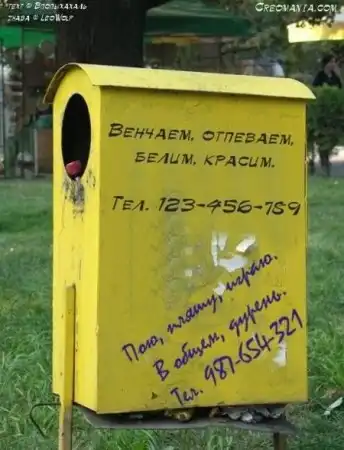 текст © Впопыхахаль
жаба © LeoWolf
Creomania.com
Венчаем, отпеваем,
белим, красим.
Тел. 123-456-789
Пою, пляшу, играю.
В общем, дурень.
Тел. 987-654-321